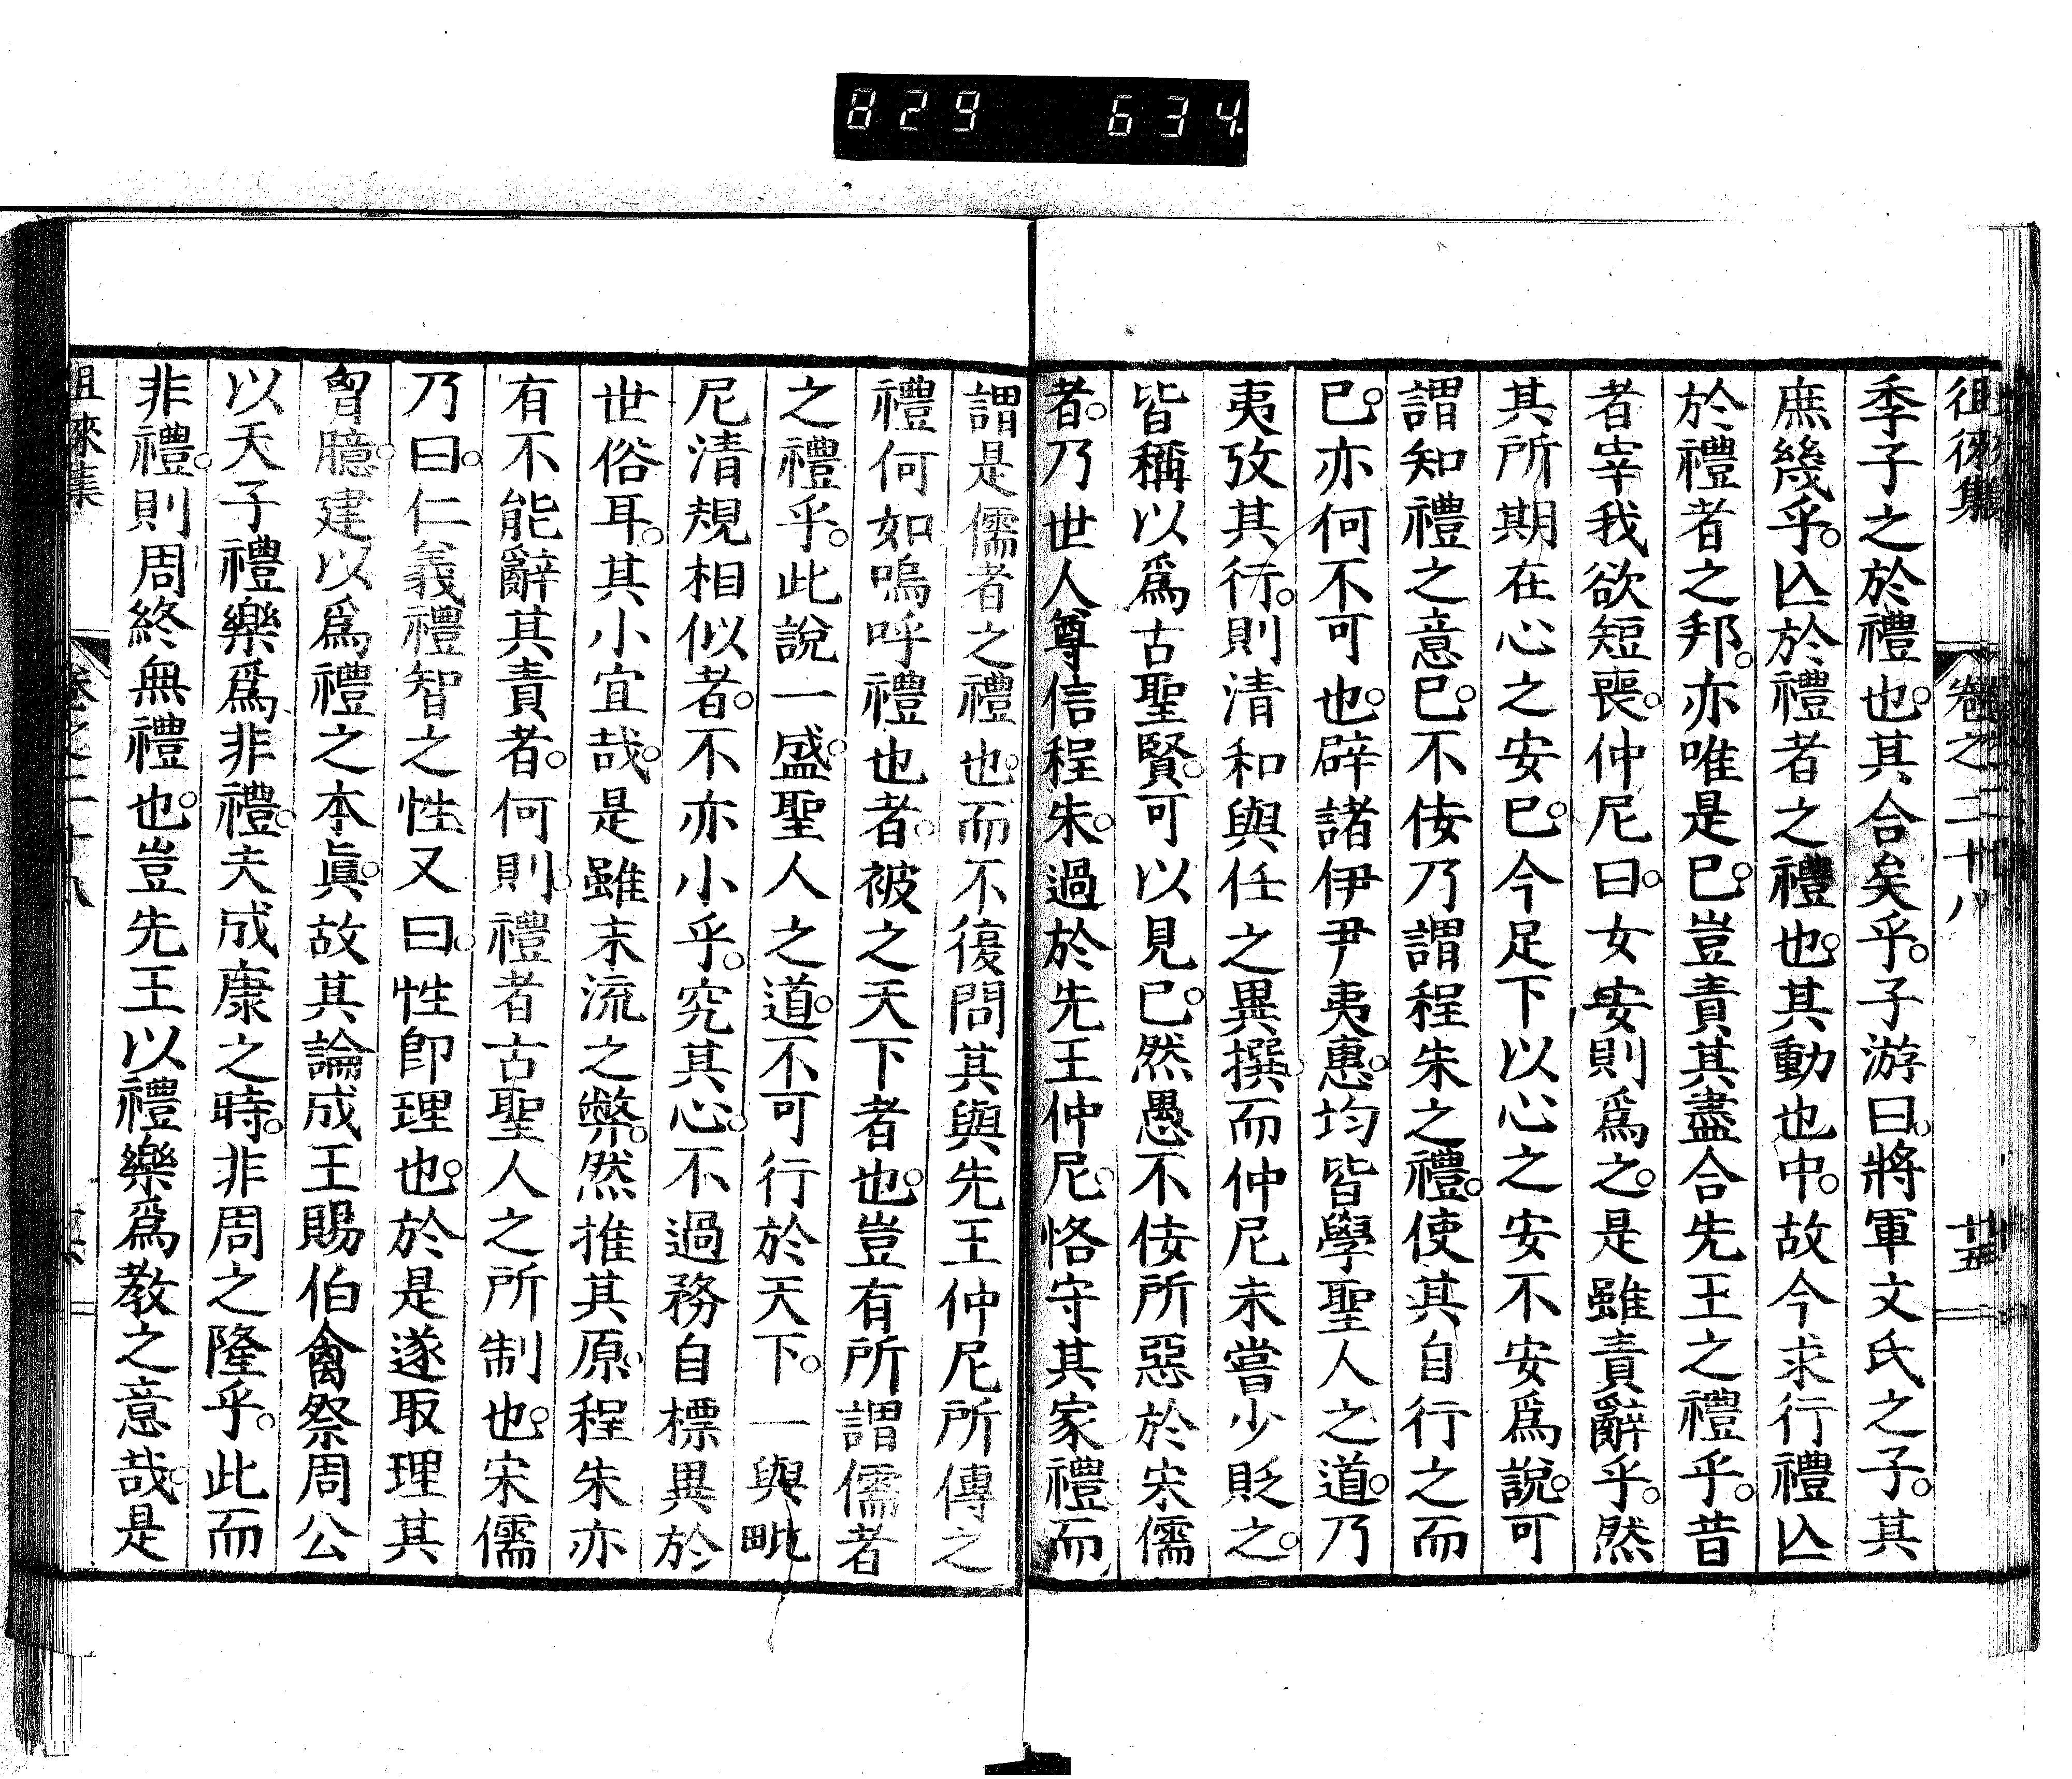 829 634
徂徠集 卷之二十八 廿五
季子之於禮也。其合矣乎。子游曰。將軍文氏之子。其
庶幾乎。亾於禮者之禮也。其動也中。故今求行禮亾
於禮者之邦。亦唯是已。豈責其盡合先王之禮乎。昔
者宰我欲短喪。仲尼曰。女安則爲之。是雖責辭乎。然
其所期在心之安已。今足下以心之安不安爲說。可
謂知禮之意已。不佞乃謂程朱之禮。使其自行之而
已。亦何不可也。辟諸伊尹夷惠。均皆學聖人之道。乃
夷攷其行。則清和與任之異撰。而仲尼未嘗少貶之。
皆稱以爲古聖賢。可以見已。然愚不佞所惡於宋儒
者。乃世人尊信程朱。過於先王仲尼。恪守其家禮而
謂是儒者之禮也。而不復問其與先王仲尼所傳之
禮何如。嗚呼禮也者。被之天下者也。豈有所謂儒者
之禮乎。此說一盛。聖人之道。不可行於天下。一與毗
尼清規相似者。不亦小乎。究其心。不過務自標異於
世俗耳。其小宜哉。是雖末流之弊。然推其原。程朱亦
有不能辭其責者。何則。禮者古聖人之所制也。宋儒
乃曰。仁義禮智之性。又曰。性卽理也。於是遂取理其
胷臆。建以爲禮之本眞。故其論成王賜伯禽祭周公
以天子禮樂爲非禮。夫成康之時。非周之隆乎。此而
非禮。則周終無禮也。豈先王以禮樂爲教之意哉。是
徠集 卷之二十八